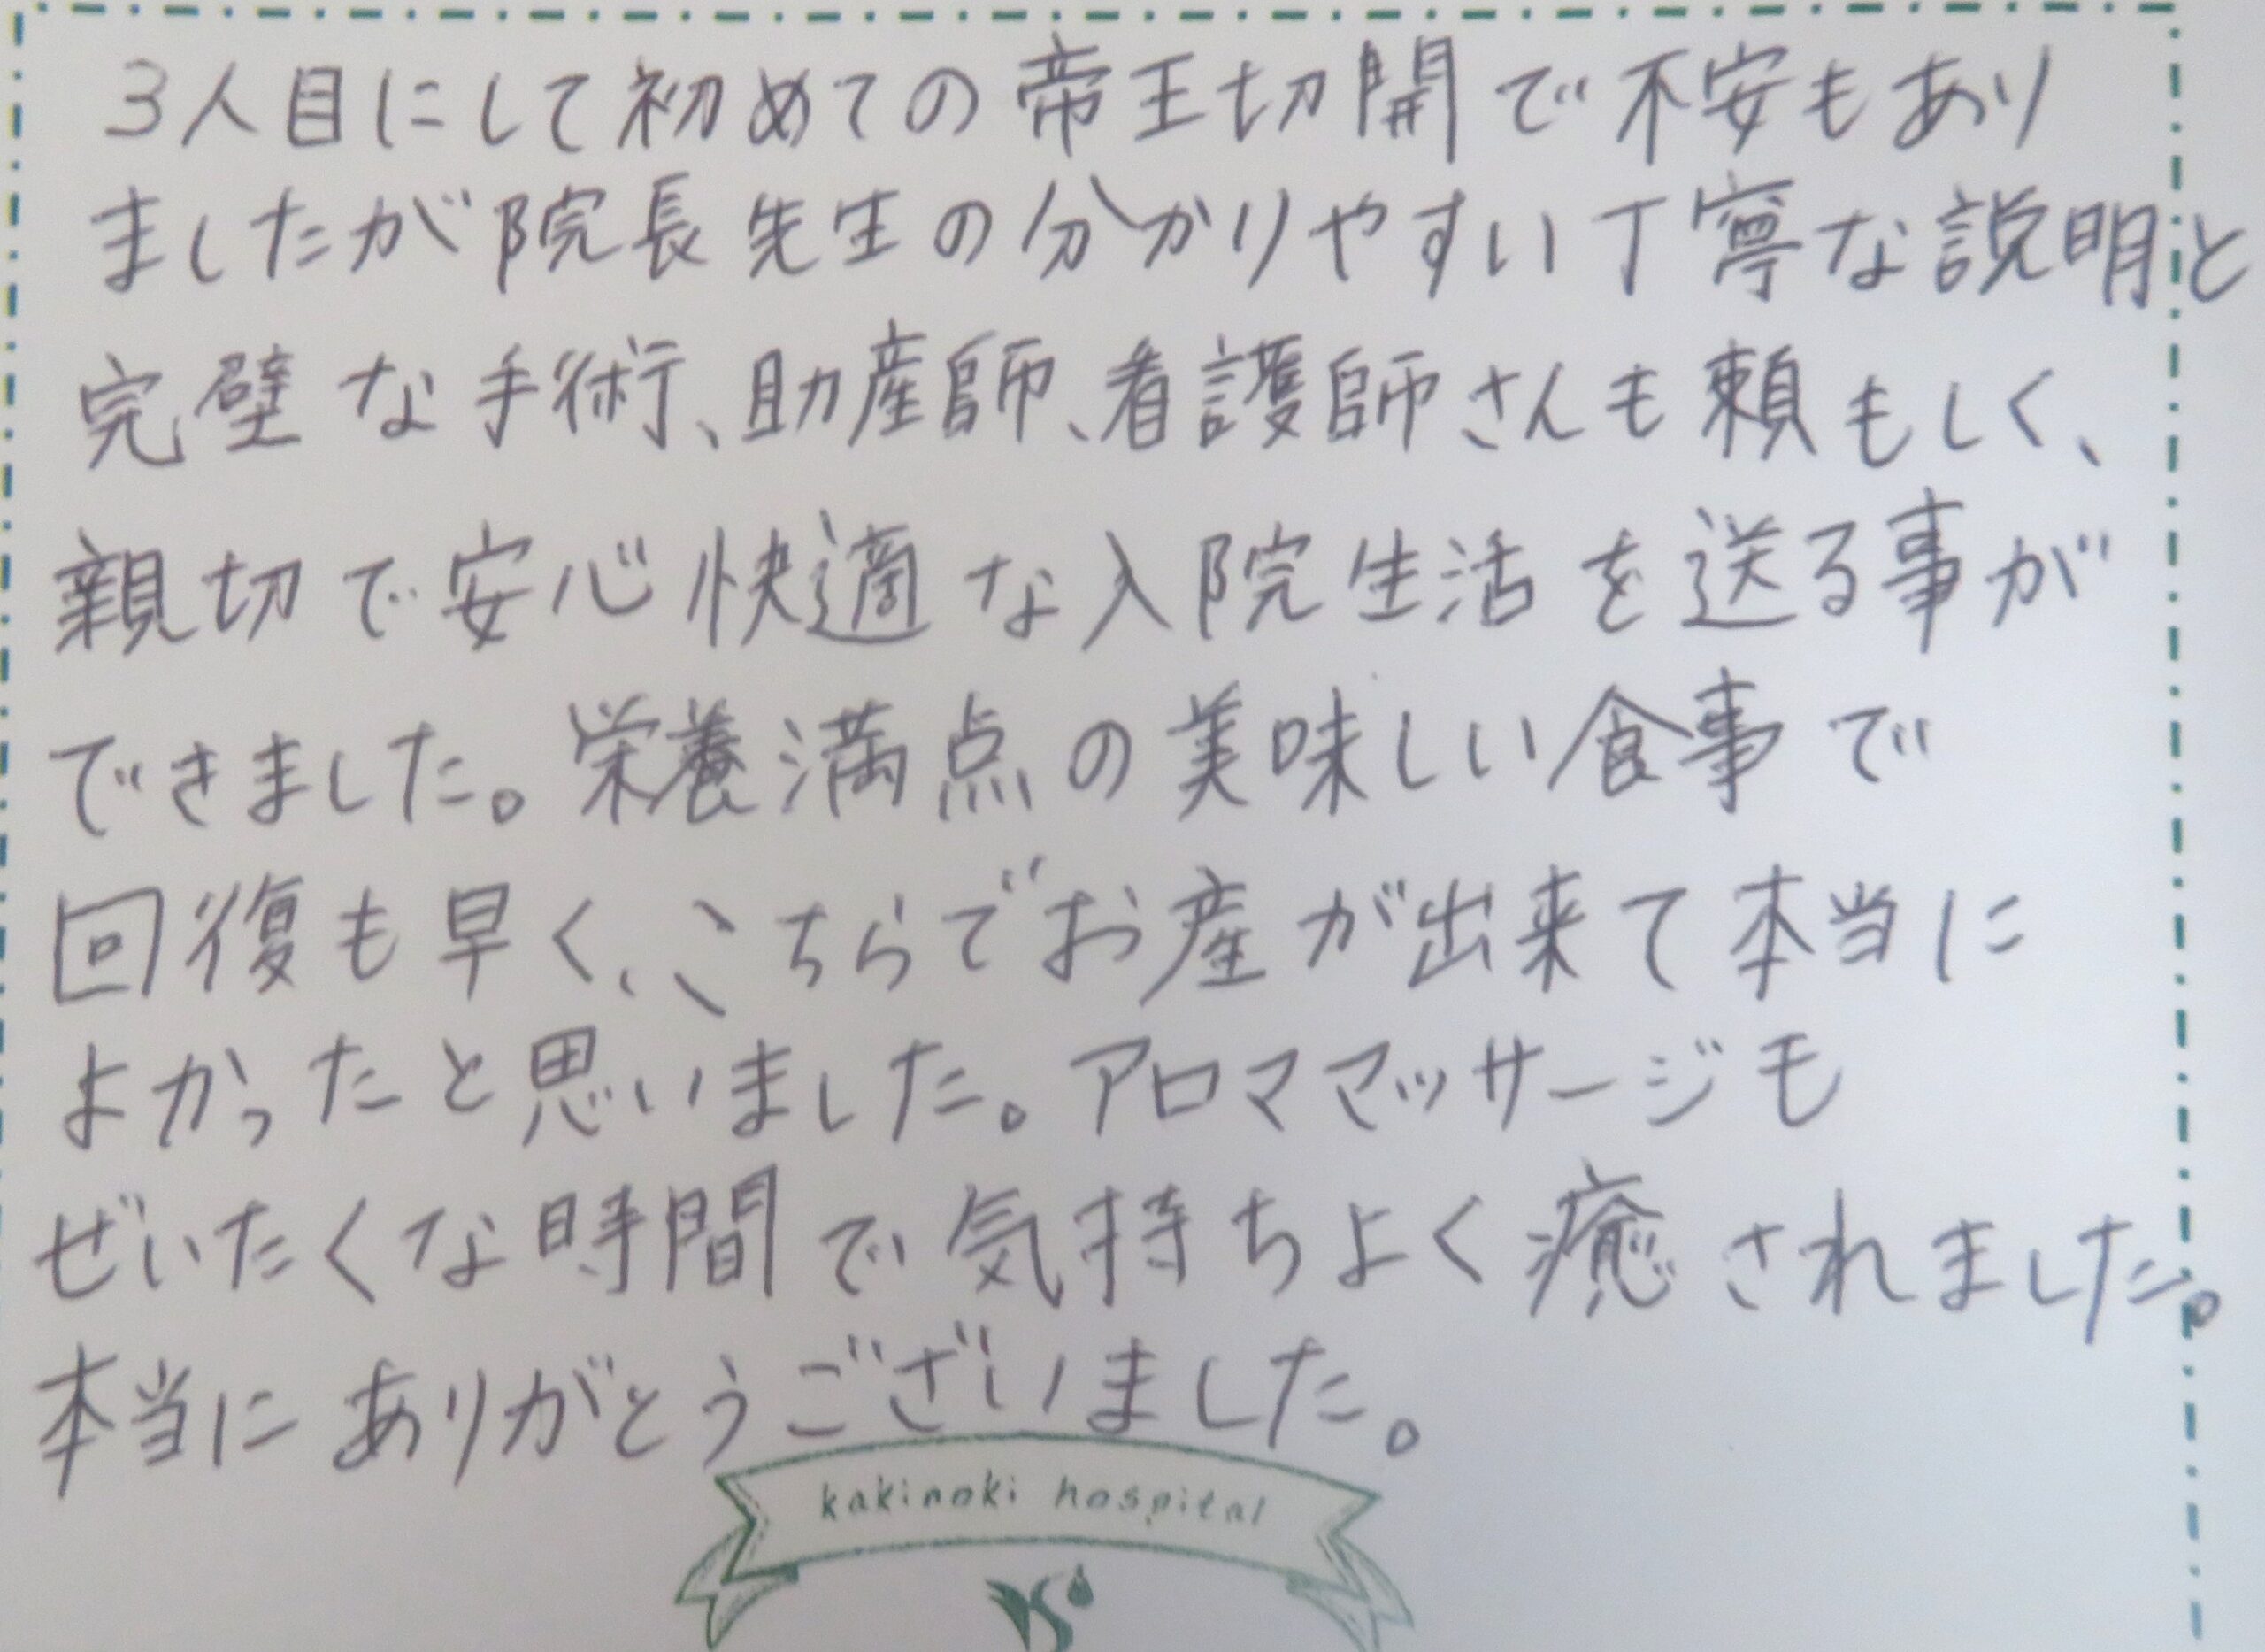 3人目にして初めての帝王切開で不安もあり
ましたが院長先生の分かりやすい丁寧な説明と
完壁な手術、助産師、看護師さんも頼もしく、
親切で安心快適な入院生活を送る事が
できました。栄養満点の美味しい食事で
回復も早く、こちらでお産が出来て本当に
よかったと思いました。アロママッサージも
ぜいたくな時間で気持ちよく癒されました。
本当にありがとうございました。
kakinoki hospital